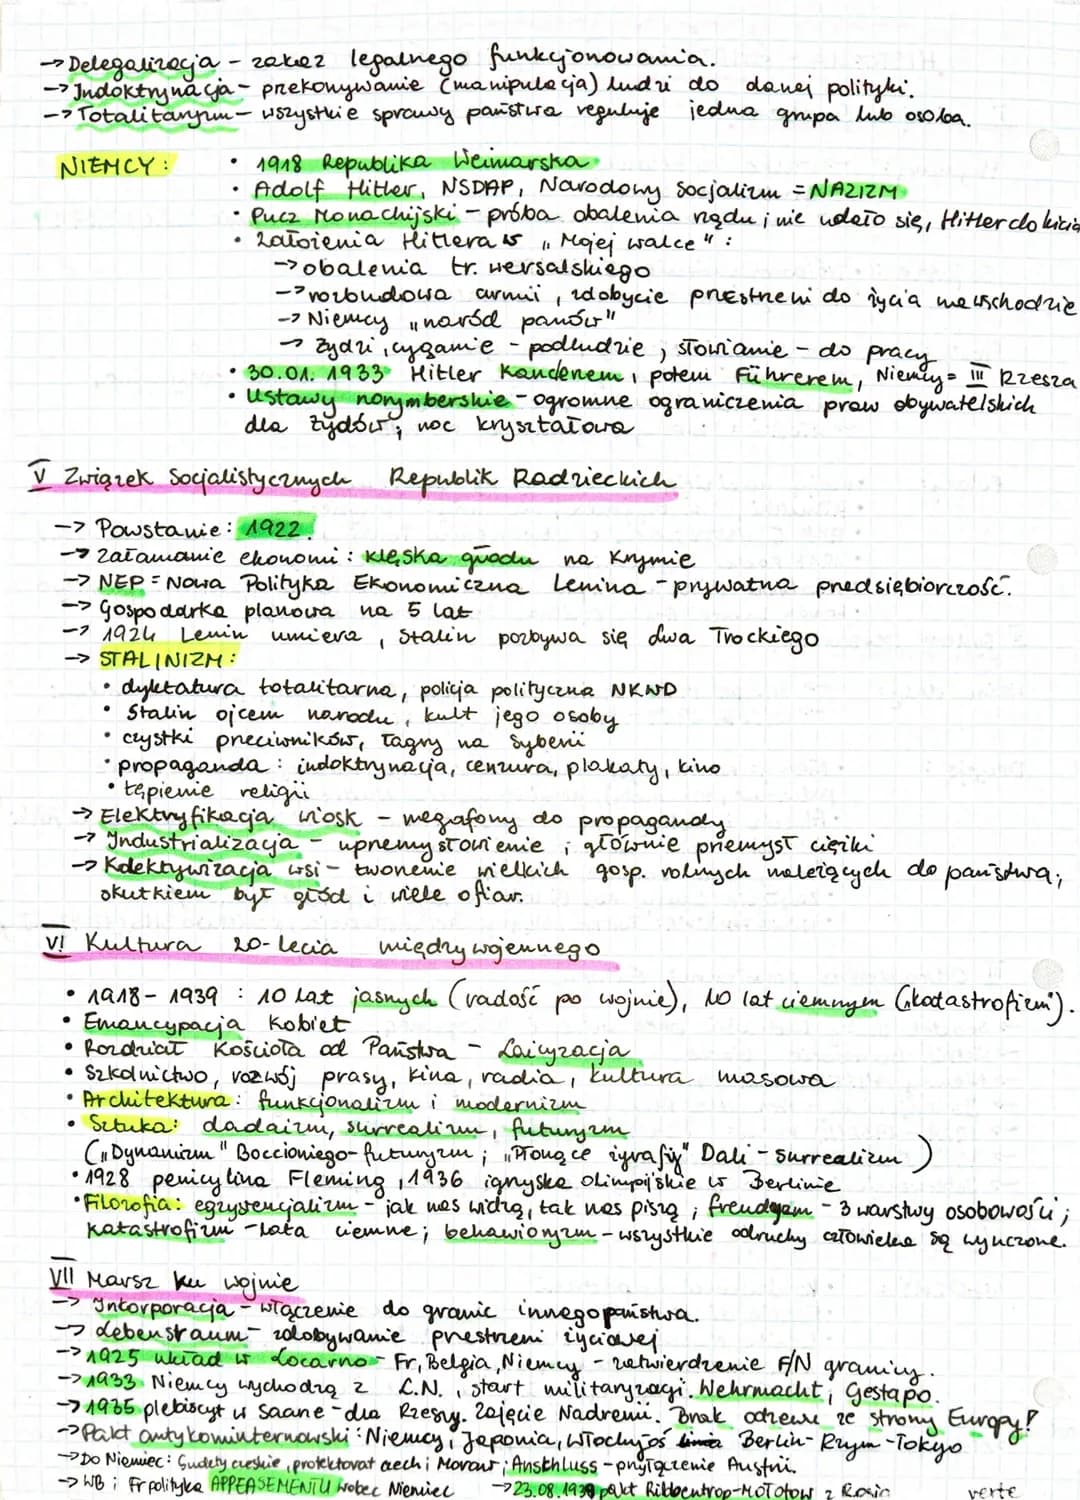 → Delegalizacja – zakaz legalnego funkcjonowania.
→ Indoktrynacja – przekonywanie (manipulacja) ludzi do danej polityki.
→ Totalitaryzm – wszystkie sprawy państwa reguluje jedna grupa lub osoba.
NIEMCY:
• 1918 Republika Weimarska
• Adolf Hitler, NSDAP, Narodowy Socjalizm = NAZIZM
• Pucz Monachijski – próba obalenia rządu; nie udało się, Hitler do kicia
• Założenia Hitlera w „Mojej walce":
→ obalenia tr. wersalskiego
→ rozbudowa armii, zdobycie przestrzeni do życia na wschodzie
→ Niemcy „naród panów"
→ Żydzi, cyganie – podludzie, słowianie – do pracy
• 30.01.1933 Hitler Kanclerzem, potem Führerem, Niemcy = III Rzesza
• Ustawy norymberskie – ogromne ograniczenia praw obywatelskich
dla żydów; noc kryształowa
V Związek Socjalistycznych Republik Radzieckich
→ Powstanie: 1922.
→ Załamanie ekonomi: klęska głodu na Krymie
→ NEP = Nowa Polityka Ekonomiczna Lenina – prywatna przedsiębiorczość.
→ Gospodarka planowa na 5 lat
→ 1924 Lenin umiera, Stalin pozbywa się Lwa Trockiego
→ STALINIZM:
• dyktatura totalitarna, policja polityczna NKWD
• Stalin ojcem narodu, kult jego osoby
• czystki przeciwników, łagry na Syberii
• propaganda: indoktrynacja, cenzura, plakaty, kino
• tępienie religii
→ Elektryfikacja wiosk – megafony do propagandy
→ Industrializacja – uprzemysłowienie; głównie przemysł ciężki
→ Kolektywizacja wsi – tworzenie wielkich gosp. rolnych należących do państwa;
skutkiem był głód i wiele ofiar.
VI Kultura 20-lecia międzywojennego
• 1918 – 1939 : 10 lat jasnych (radość po wojnie), 10 lat ciemnym („katastrofizm").
• Emancypacja Kobiet
• Rozdział Kościoła od Państwa – Laicyzacja
• Szkolnictwo, rozwój prasy, kina, radia, kultura masowa
• Architektura: funkcjonalizm i modernizm
• Sztuka: dadaizm, surrealizm, futuryzm
(„Dynamizm" Boccioniego – futuryzm; „Płonące żyrafy" Dali – surrealizm)
• 1928 penicylina Fleming, 1936 igrzyska olimpijskie w Berlinie
• Filozofia: egzystencjalizm – jak nas widzą, tak nas piszą; freudyzm – 3 warstwy osobowości;
katastrofizm – lata ciemne; behawioryzm – wszystkie odruchy człowieka są wyuczone.
VII Marsz ku wojnie
→ Inkorporacja – włączenie do granic innego państwa.
→ Lebensraum – zdobywanie przestrzeni życiowej
→ 1925 układ w Locarno – Fr, Belgia, Niemcy – zatwierdzenie F/N granicy.
→ 1933 Niemcy wychodzą z L.N., start militaryzacji. Wehrmacht, Gestapo.
→ 1935 plebiscyt w Saarze – dla Rzeszy. Zajęcie Nadrenii. Brak odzewu ze strony Europy!
→ Pakt antykominternowski: Niemcy, Japonia, Włochy; oś Berlin – Rzym – Tokyo
→ Do Niemiec: Sudety czeskie, protektorat Czech i Moraw; Anschluss – przyłączenie Austrii.
→ WB i Fr polityka APPEASEMENTU wobec Niemiec → 23.08.1939 pakt Ribbentrop-Mołotow z Rosją verte